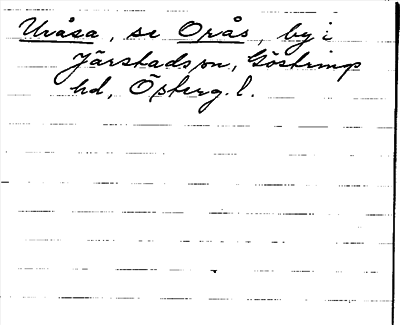 Uråsa, se Orås, by i
Järstads sn, Göstrings
hd, Österg. l.